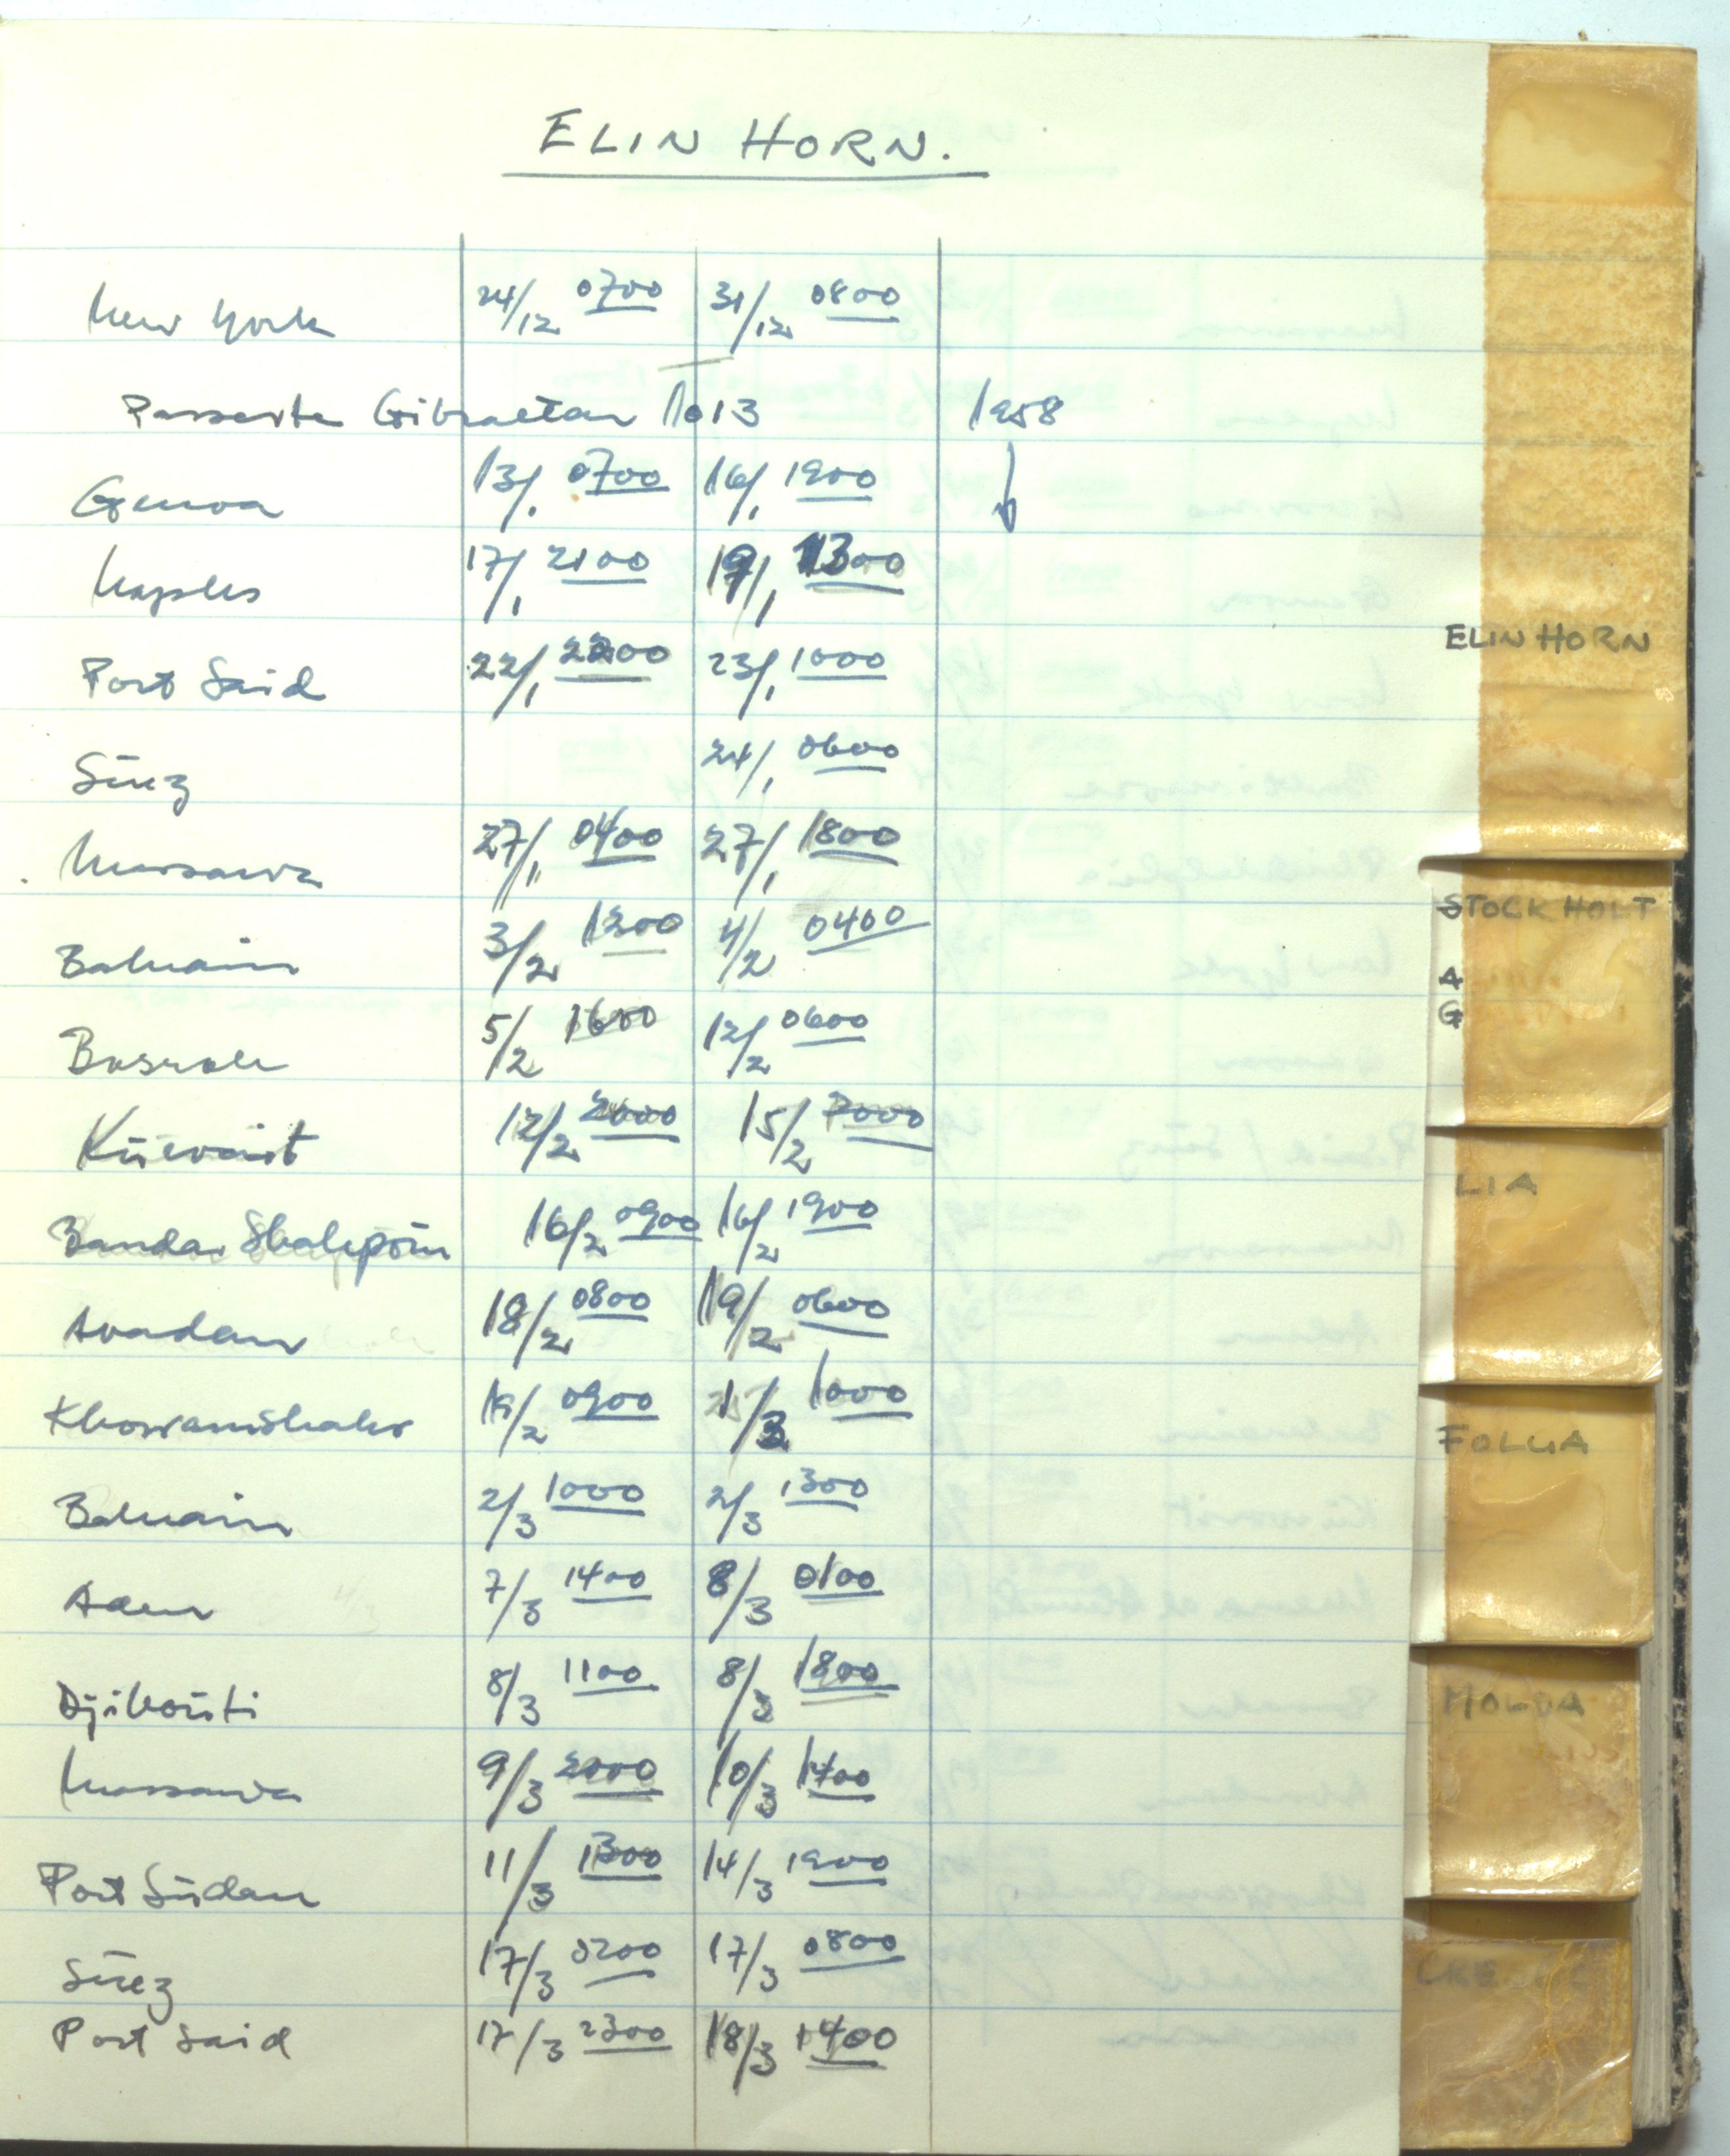 ELIN HORN.
New York 24/12 0700 31/12 0800
Passerte Gibraltar 1013 1958
Genoa 13/1 0700 16/1 1900
Naples 17/1 2100 19/1 1300
Port Said 22/1 2200 23/1 1000
Süez 24/1 0600
Massawa 27/1 0400 27/1 1800
Bahrain 3/2 1300 4/2 0400
Basrah 5/2 1600 12/2 0600
Küwait 12/2 2000 15/2
Bandar Shahpoür 16/2 0900 16/2 1900
Avadan 18/2 0800 19/2 0600
Khorramshahr 19/2 0900 1/3 1000
Bahrain 2/3 1000 2/3 1300
Aden 7/3 1400 8/3 0100
Djiboüti 8/3 1100 8/3 1800
Massawa 9/3 2000 10/3 1400
Port Südan 11/3 1300 14/3 1900
Süez 17/3 0200 17/3 0800
Port Said 17/3 2300 18/3 1400
ELIN HORN
STOCK HOLT
A
G
LIA
FOLGA
MOLDA